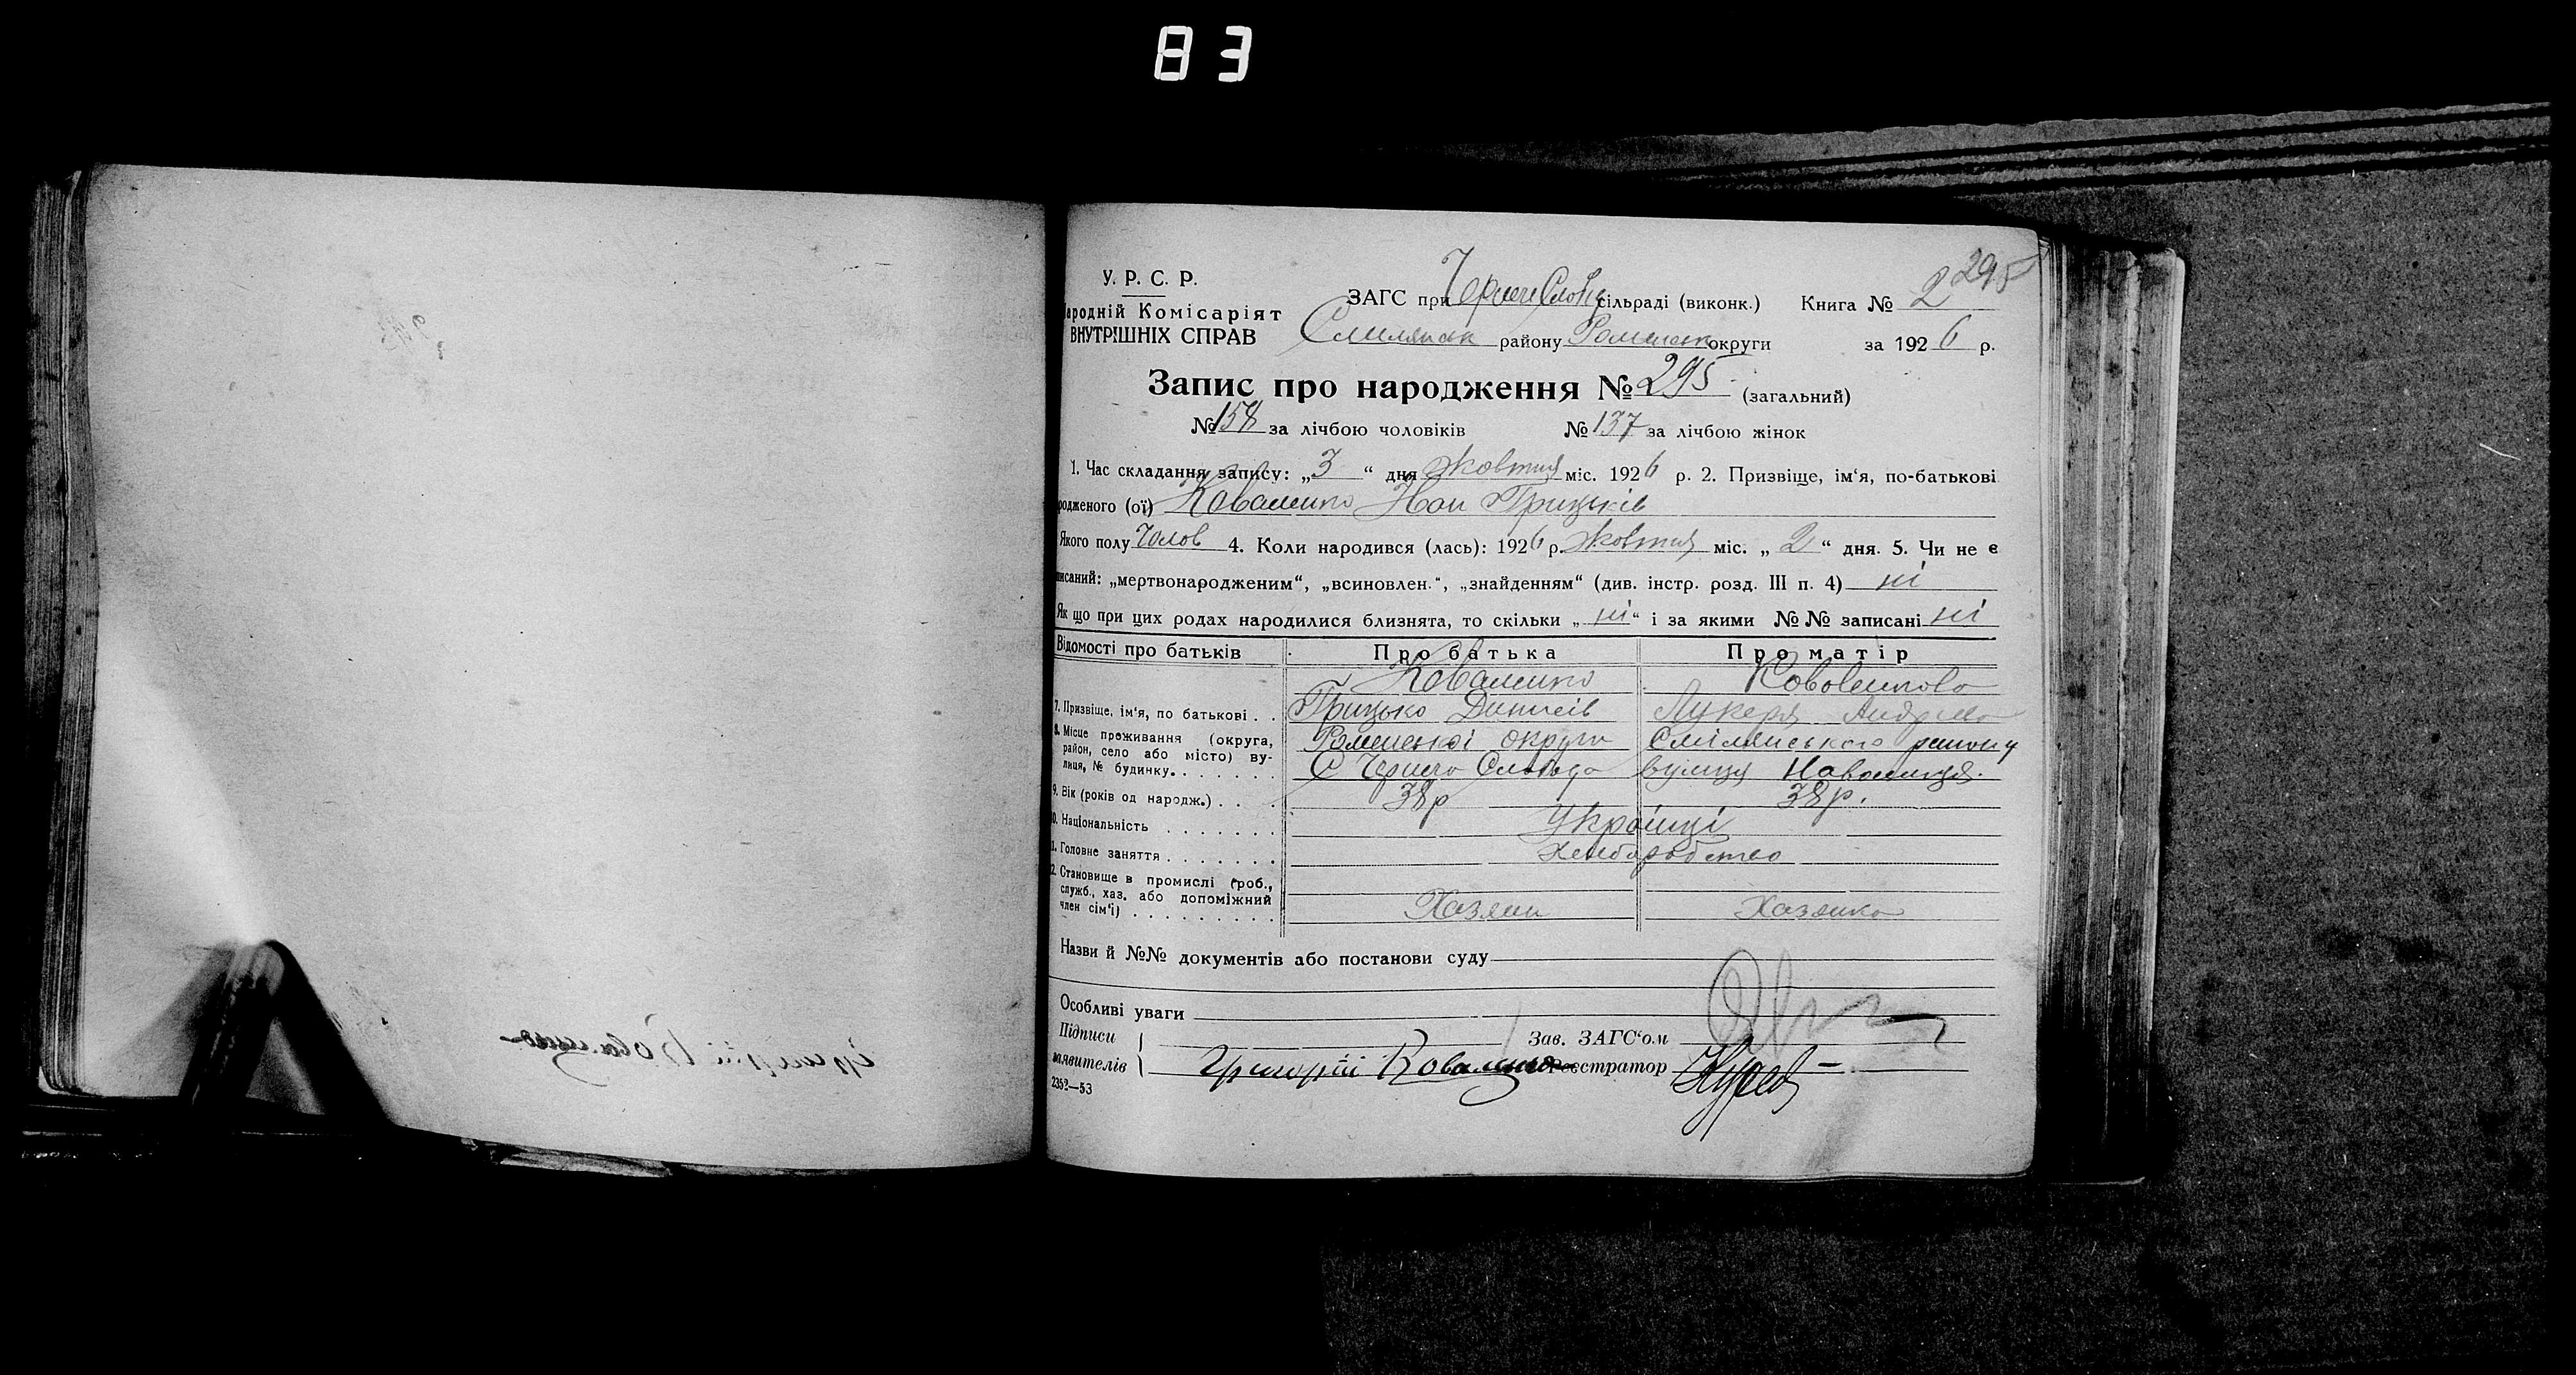 83
295
У. Р. С. Р.
ародній Комісаріят
ВНУТРІШНІХ СПРАВ
ЗАГС при Чернечеслобід сільраді (виконк.) Книга № 2
Смілянськ району Роменськ округи за 1926 р.
Запис про народження № 295 (загальний)
№ 158 за лічбою чоловіків № 137 за лічбою жінок
1. Час складання запису: „3“ дня Жовтня міс. 1926 р. 2. Призвіще, ім‘я, по-батькові
родженого (ої) Коваленко Іван Грицьків
Якого полу Чолов 4. Коли народився (лась): 1926 р. Жовтня міс. „2“ дня. 5. Чи не є
писаний: „мертвонародженим“, „всиновлен.“, „знайденням“ (див. інстр. розд. III п. 4) ні
Як що при цих родах народилися близнята, то скільки „ні“ і за якими №№ записані ні
Відомості про батьків Про батька Про матір
Коваленко Коволенкова
7. Призвіще, ім‘я, по батькові . . Грицько Лукеря
8. Місце проживання (округа, район, село або місто) вулиця, № будинку. Роменської округи Смілянського району
С Чернеча Слобода вулиця
9. Вік (років од народж.) . . . 38р 38р.
10. Національність Українці
11. Головне заняття Хлеборобство
12. Становище в промислі (роб.,
служб., хаз. або допоміжний
член сім‘ї) Хазяин Хазяика
Назви й №№ документів або постанови суду
Особливі уваги
Підписи
заявителів
Зав. ЗАГС‘ом
Григорій Коваленко Реєстратор
2352—53